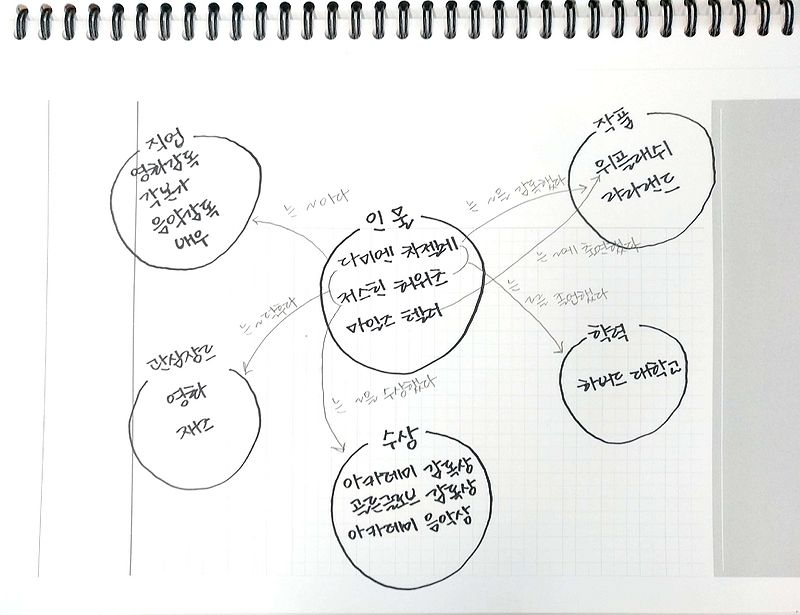 직업
영화감독
각본가
음악감독
배우
작품
위플래쉬
라라랜드
인물
다미엔 차젤레
저스틴 허위츠
마일즈 텔러
는 ~이다
는 ~을 감독했다
는 ~에 출연했다
는 ~를 졸업했다
학력
하버드 대학교
관심장르
영화
재즈
는 ~을 수상했다
수상
아카데미 감독상
골든글로브 감독상
아카데미 음악상